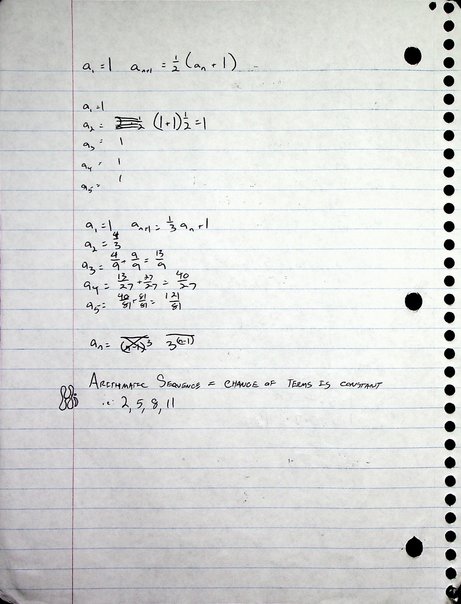 a₁ = 1 aₙ₊₁ = 1/2 (aₙ + 1)
a₁ = 1
a₂ = (1+1) 1/2 = 1
a₃ = 1
a₄ = 1
a₅ = 1
a₁ = 1 aₙ₊₁ = 1/3 aₙ + 1
a₂ = 4/3
a₃ = 4/9 + 9/9 = 13/9
a₄ = 13/27 + 27/27 = 40/27
a₅ = 40/81 + 81/81 = 121/81
aₙ = 3^(n-1)
ARITHMATIC SEQUENCE = CHANGE OF TERMS IS CONSTANT
i.e: 2, 5, 8, 11